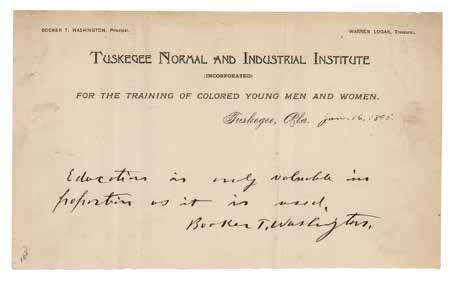 BOOKER T. WASHINGTON, Principal.
WARREN LOGAN, Treasurer.
TUSKEGEE NORMAL AND INDUSTRIAL INSTITUTE
(INCORPORATED)
FOR THE TRAINING OF COLORED YOUNG MEN AND WOMEN.
Tuskegee, Ala. Jan. 16, 1895
Education is only valuable in
proportion as it is used.
Booker T. Washington.